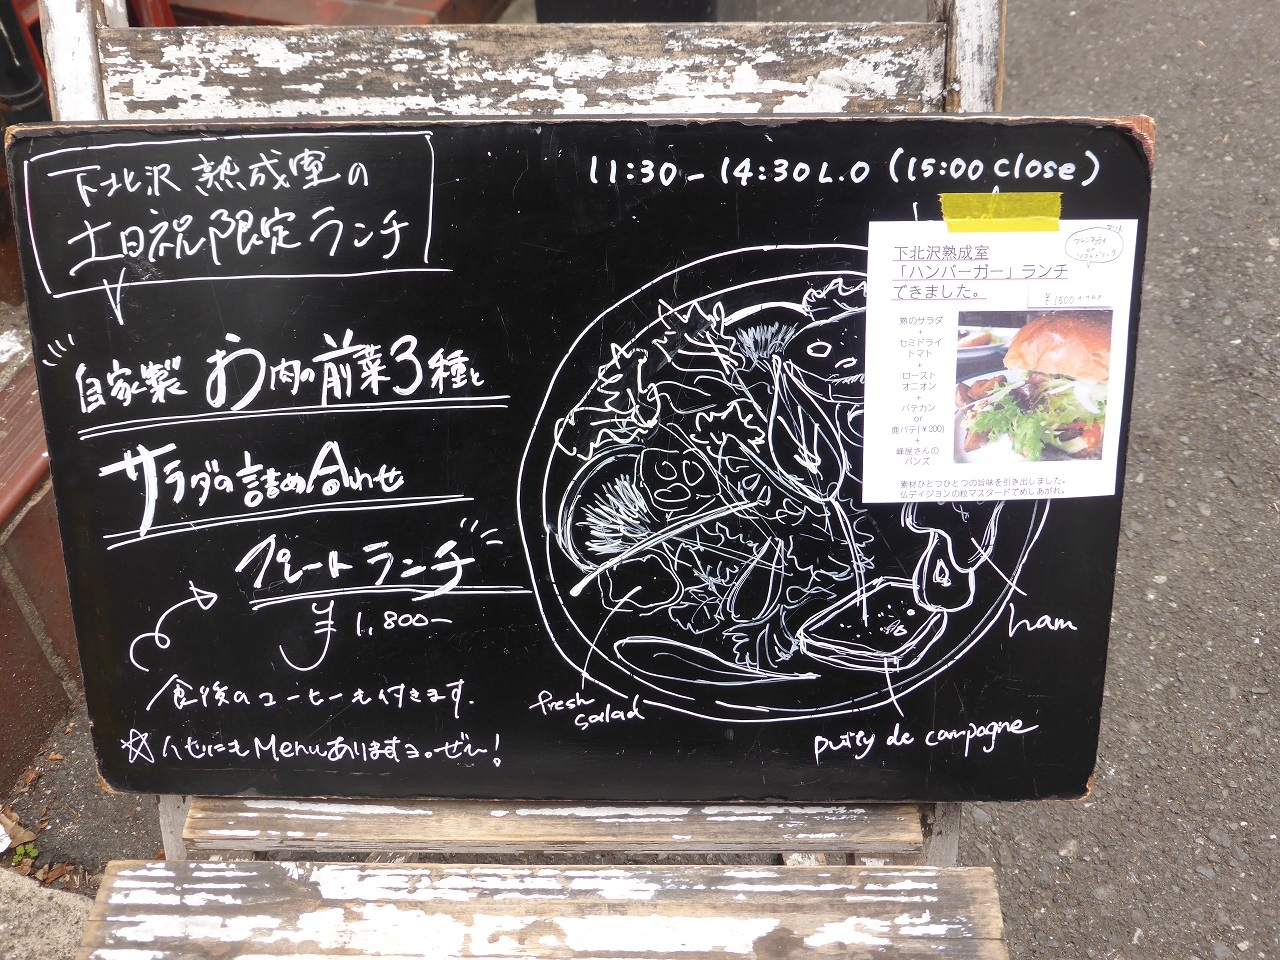 下北沢 熟成室の
土日祝限定ランチ
11:30 - 14:30 L.O (15:00 close)
自家製 お肉の前菜3種と
サラダの詰め合わせ
プレートランチ
¥1,800-
食後のコーヒーも付きます.
☆ Menuあります
fresh
salad
ham
de campagne
下北沢熟成室
「ハンバーガー」ランチ
できました。
フレンチフライ
or
ソフトドリンク
¥1500
熟のサラダ
+
セミドライ
トマト
+
ロースト
オニオン
+
パテカン
or
鹿パテ(¥200)
+
峰屋さんの
バンズ
素材ひとつひとつの旨味を引き出しました。
仏ディジョンの粒マスタードでめしあがれ。